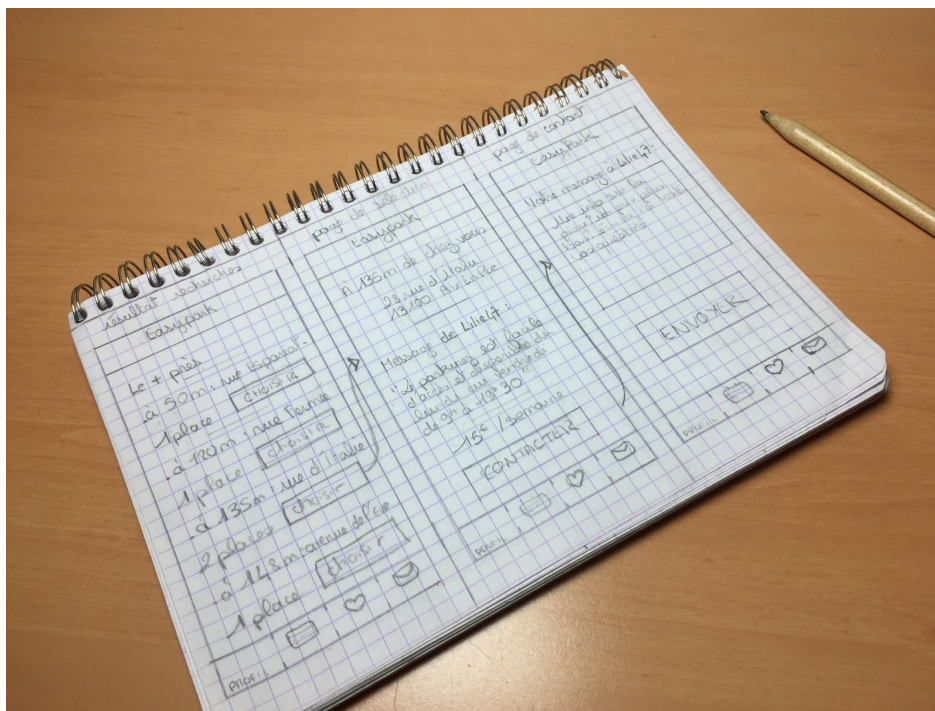 résultat recherches
Easypark
Le + près
à 50m : rue Espariat.
1 place
CHOISIR
à 120m : rue Fermée
1 place
choisir
à 135m : rue d'Italie
2 places
choisir
à 148m : avenue de l'
1 place
choisir
PROFIL
page de
Easypark
A 135m de chez vous
28 rue d'Italie
13100
Message de Lilie47 :
"Le parking est facile
d'accès et disponible du
lundi au vendredi
de 9h à 19h30"
15€ / semaine
CONTACTER
PROFIL
page de contact
EasyPark
Votre message à Lilie47 :
ENVOYER
PROFIL